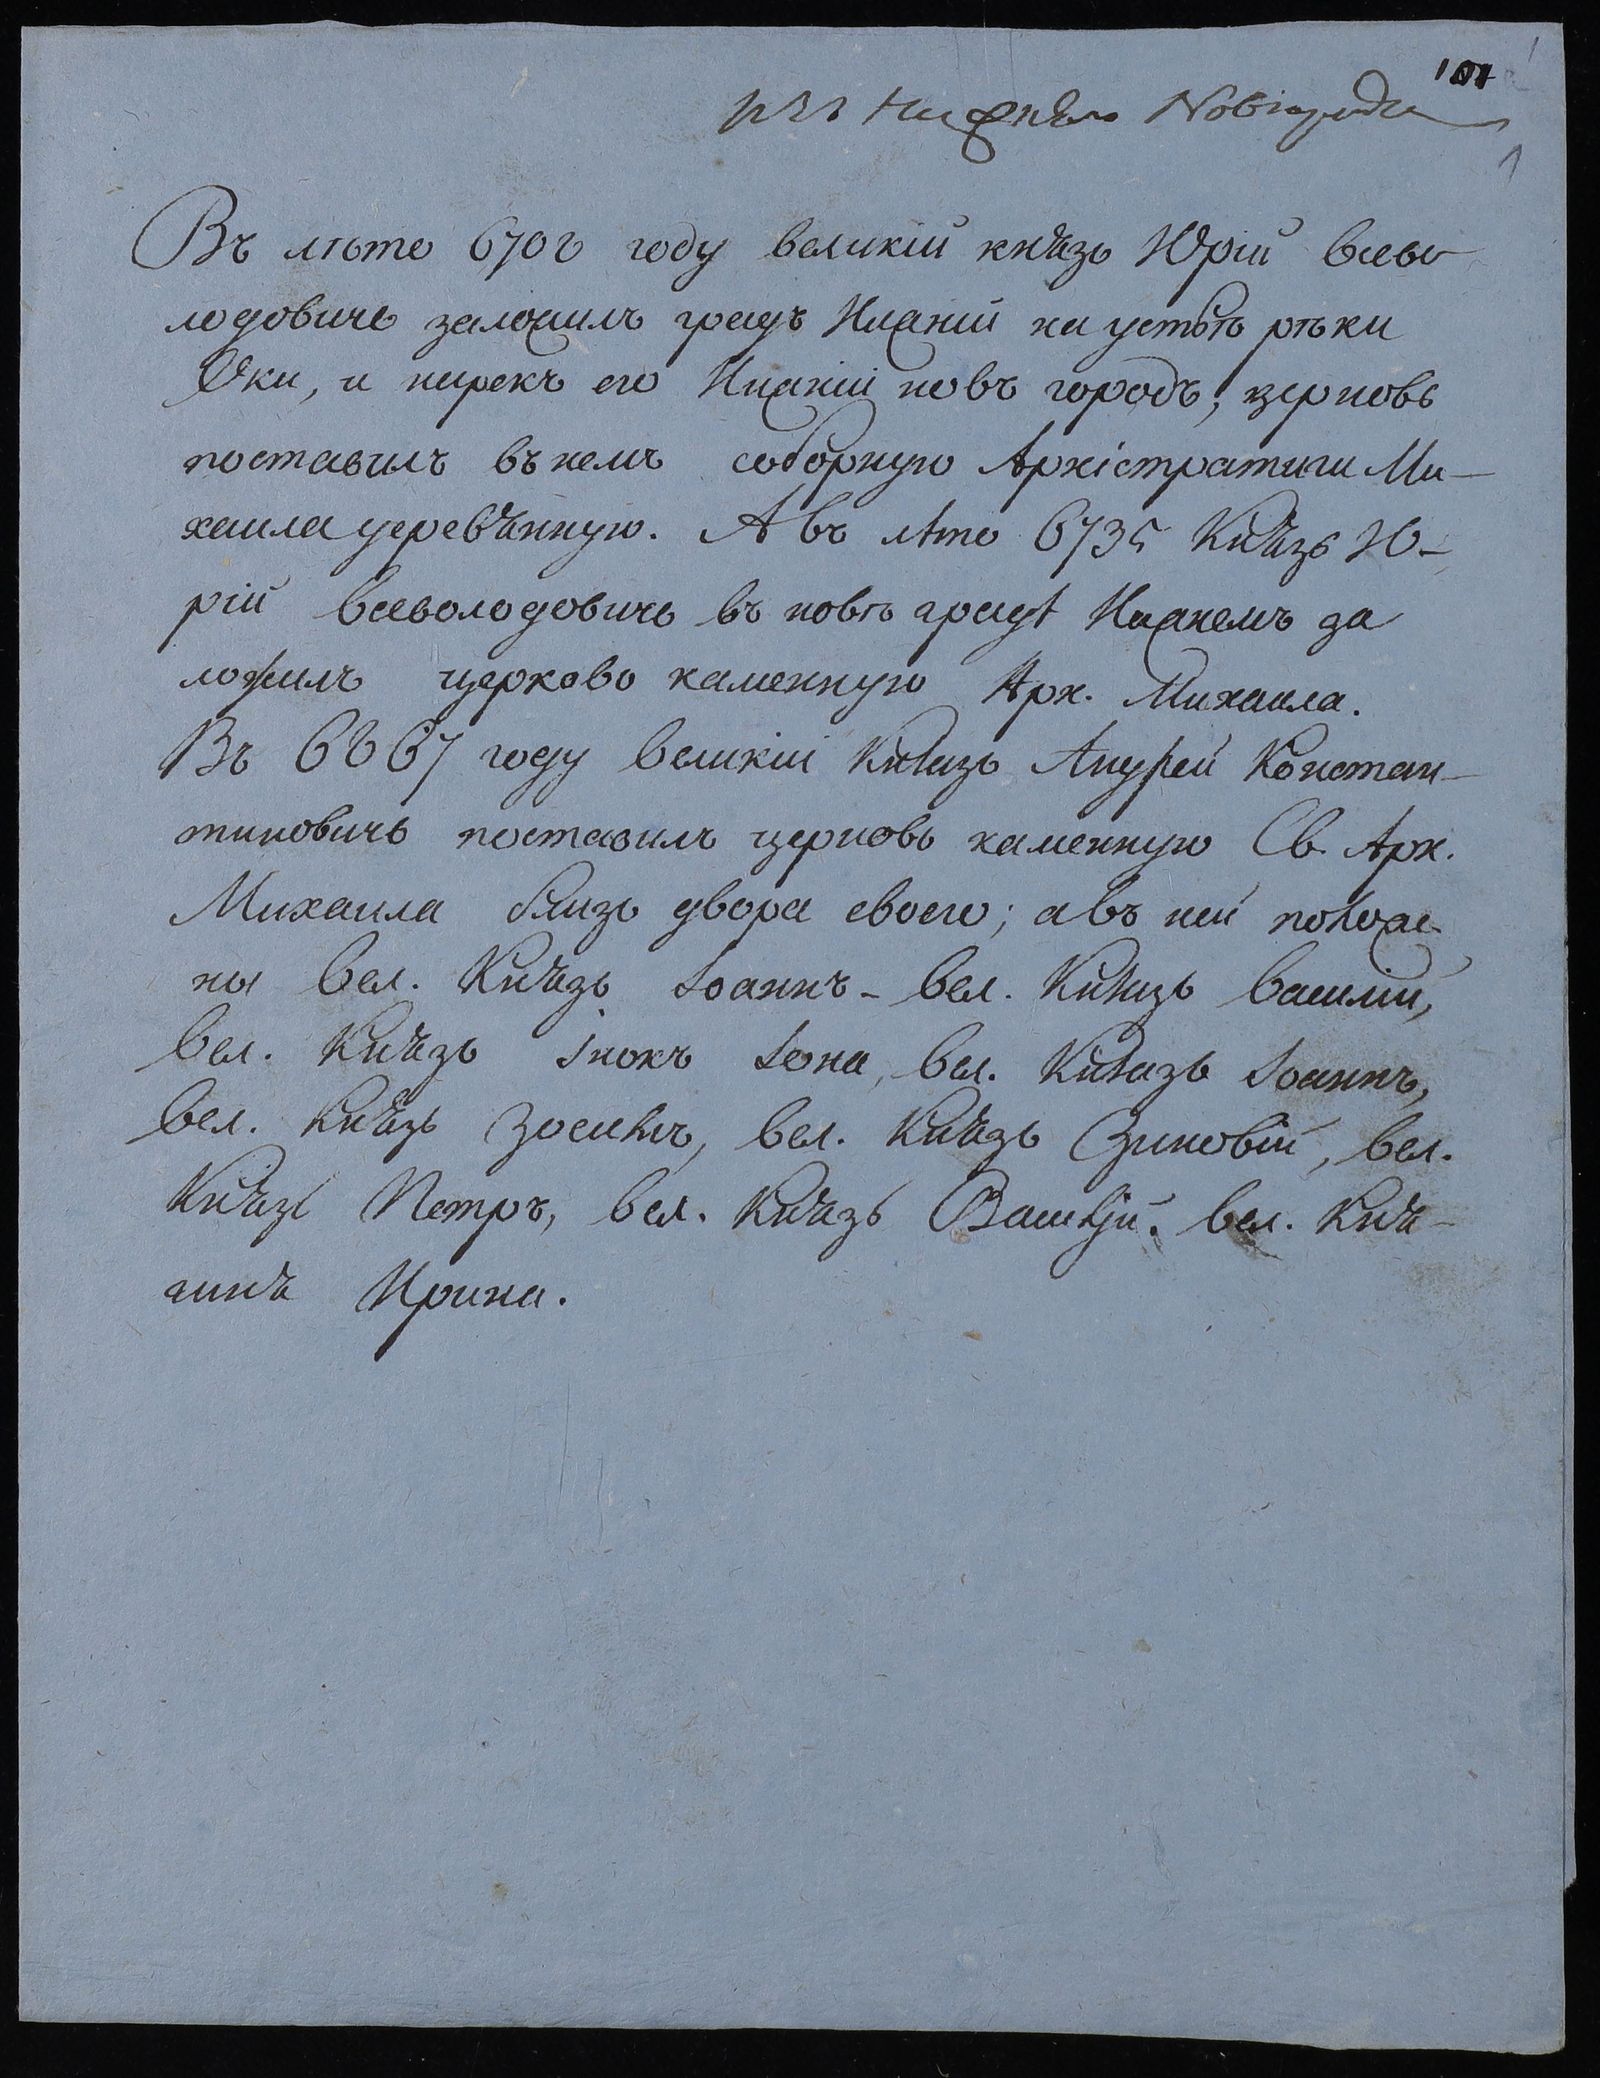 101
изъ Нижняго Новгорода
1
Въ лѣто 6708 году великій князь Юрій всево
лодовичь заложилъ градъ Нижній на устьѣ рѣки
Оки, и нарекъ его Нижній новъ городъ; церковь
поставилъ въ немъ соборную Архістратига Ми-
хаила деревѣнную. А въ лѣто 6735 Князь Ю-
рій всеволодовичь въ новѣ градѣ Нижнемъ за
ложилъ церковь каменную Арх. Михаила.
Въ 6867 году великій Князь Андрей Констан-
тиновичь поставилъ церковь каменную Св. Арх.
Михаила близь двора своего; а въ ней положе-
ны вел. Князь Іоаннъ - вел. Князь Василій,
вел. Князь Інокъ Іона, вел. Князь Іоаннъ,
вел. Князь вел. Князь Зиновій, вел.
Князь Петръ, вел. Князь Василій. вел. Кня-
гинѣ Ирина.